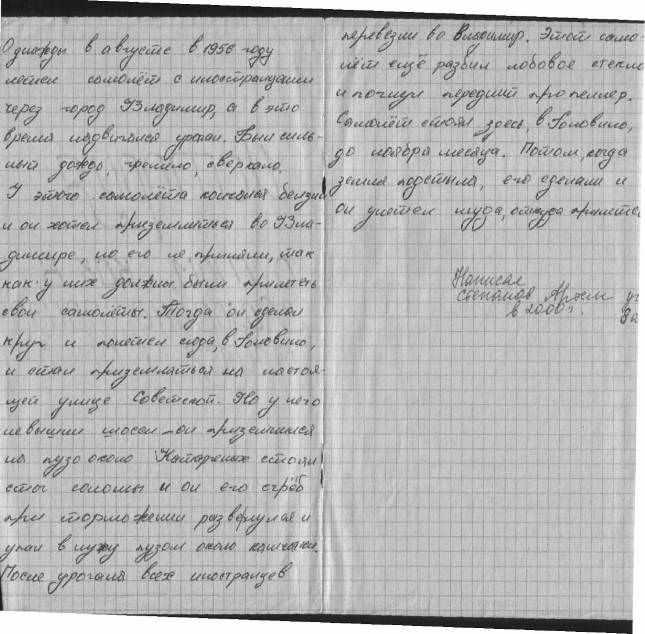 Однажды в августе в 1956 году
летел самолёт с иностранцами
через город Владимир, а в это
время надвигался ураган. Был силь-
ный дождь, гремело, сверкало.
У этого самолёта кончался бензин
и он хотел приземляться во Вла-
димире, но его не приняли, так
как у них должны были прилететь
свои самолёты. Тогда он сделал
круг и полетел сюда, в Головино,
и стал приземляться на настоя-
щей улице Советской. Но у него
не вышли шасси - он приземлился
на пузо около стояли
стог соломы и он его сгрёб
при торможении развернулся и
упал в лужу пузом около
После урагана всех иностранцев
перевезли во Владимир. Этот само-
лёт ещё разбил лобовое стекло
и погнул передний пропеллер.
Самолёт стоял здесь, в Головино,
до ноября месяца. Потом, когда
земля подстыла, его сделали и
он улетел туда, откуда прилетел
Написал
Степанов Артём уч
в 2000 г.